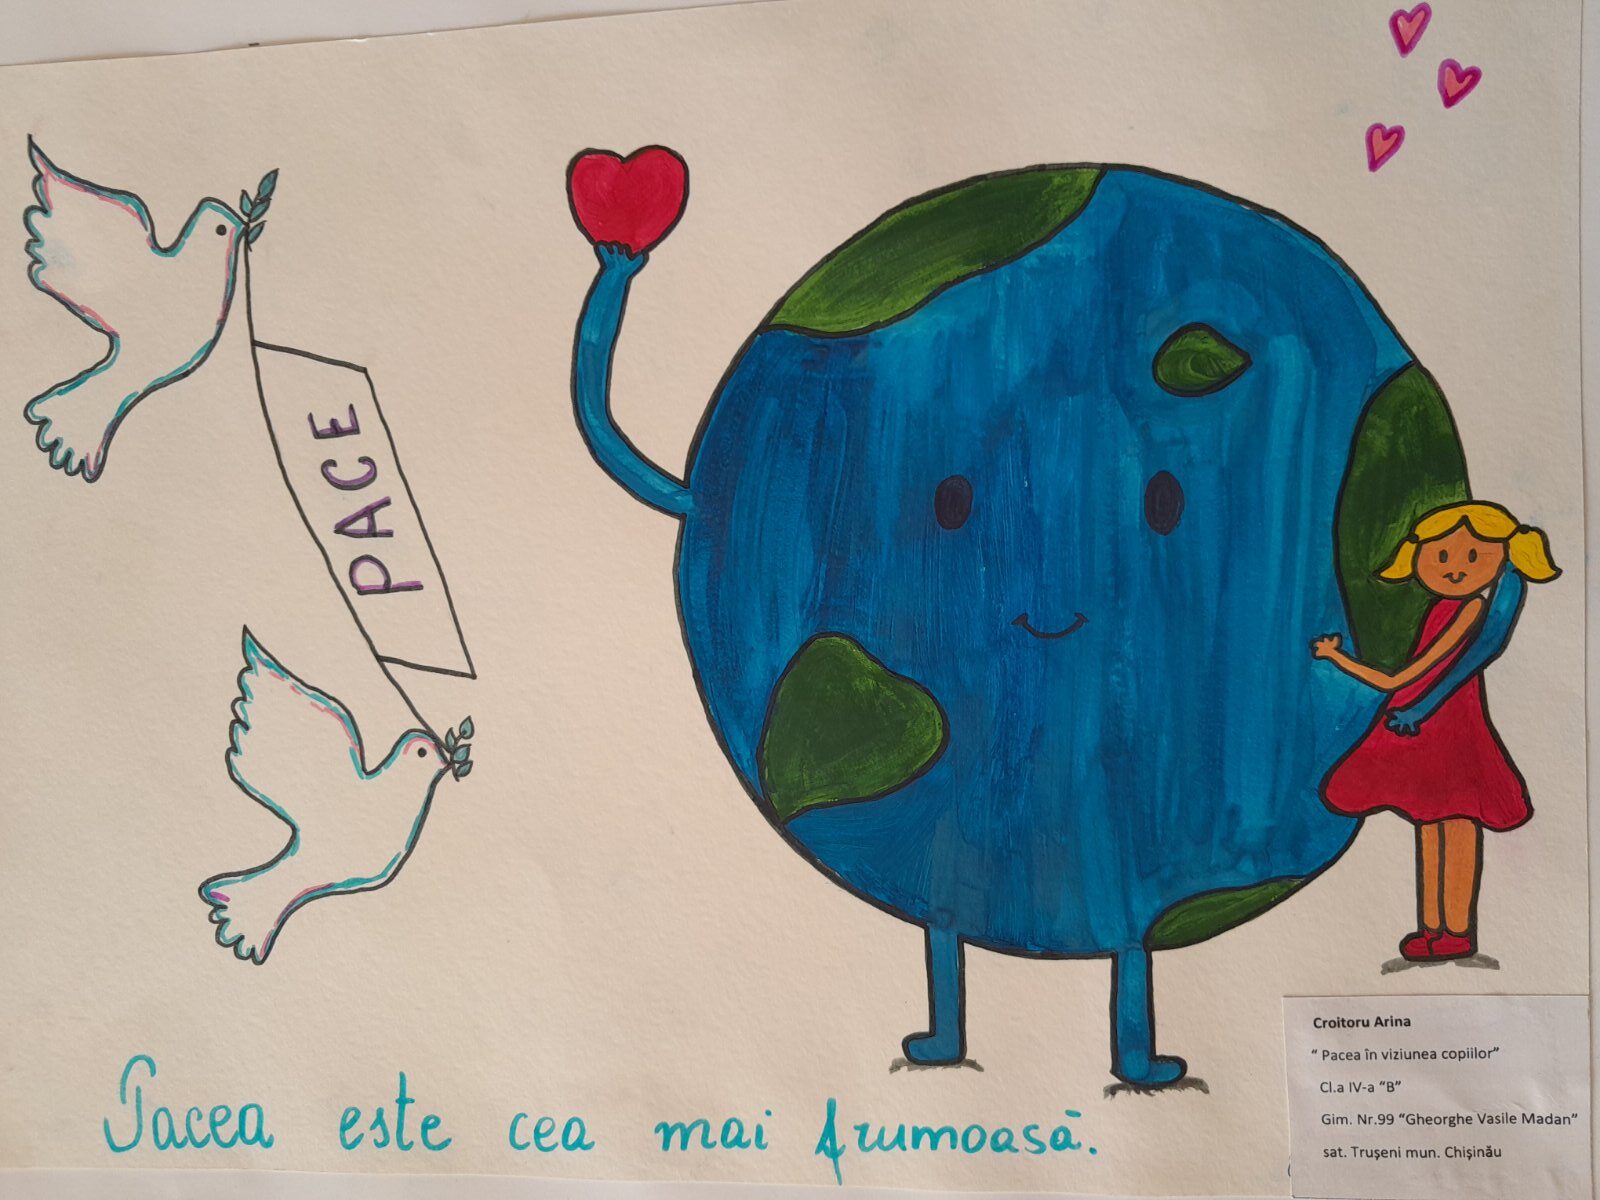 PACE
Pacea este cea mai frumoasă.
Croitoru Arina
“ Pacea în viziunea copiilor”
Cl.a IV-a “B”
Gim. Nr.99 “Gheorghe Vasile Madan”
sat. Trușeni mun. Chișinău